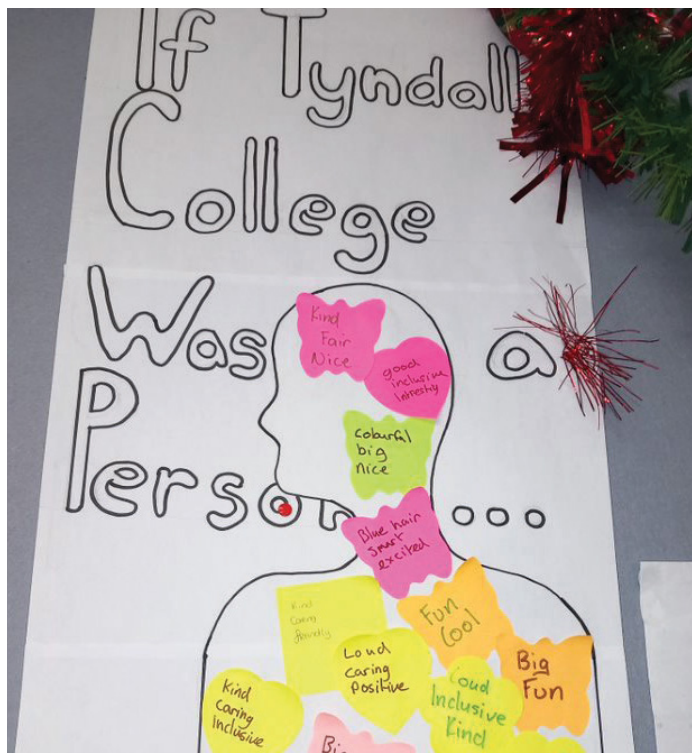 If Tyndall
College
Was a
Person...
Kind
Fair
Nice
good
inclusive
colourful
big
nice
Blue hair
smart
excited
Kind
Caring
friendly
Fun
Cool
Loud
Caring
Positive
Big
Fun
Loud
Inclusive
Kind
Kind
Caring
Inclusive